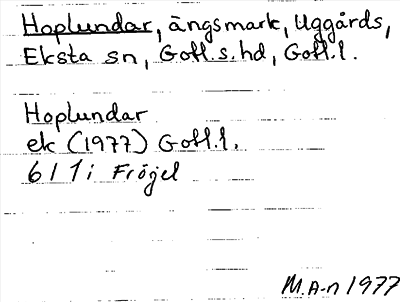 Hoplundar, ängsmark, Uggårds,
Eksta sn, Gotl.s.hd, Gotl.l.
Hoplundar
ek (1977) Gotl.l.
6 I 1 i Fröjel
M.A-n 1977